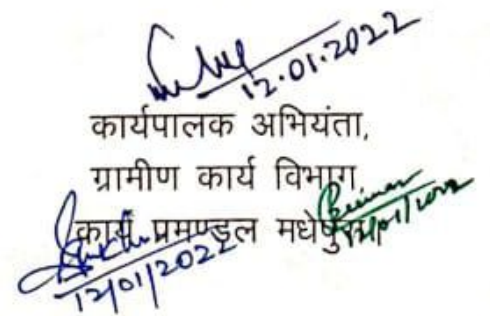 12.01.2022
कार्यपालक अभियंता,
ग्रामीण कार्य विभाग
कार्य प्रमण्डल मधेपुरा
12/01/2022
12/01/2022